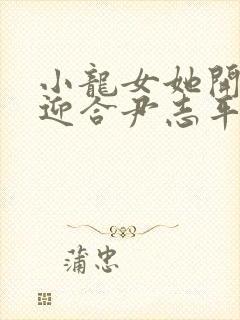 小龍女她開
迎合尹志平
蒲忠